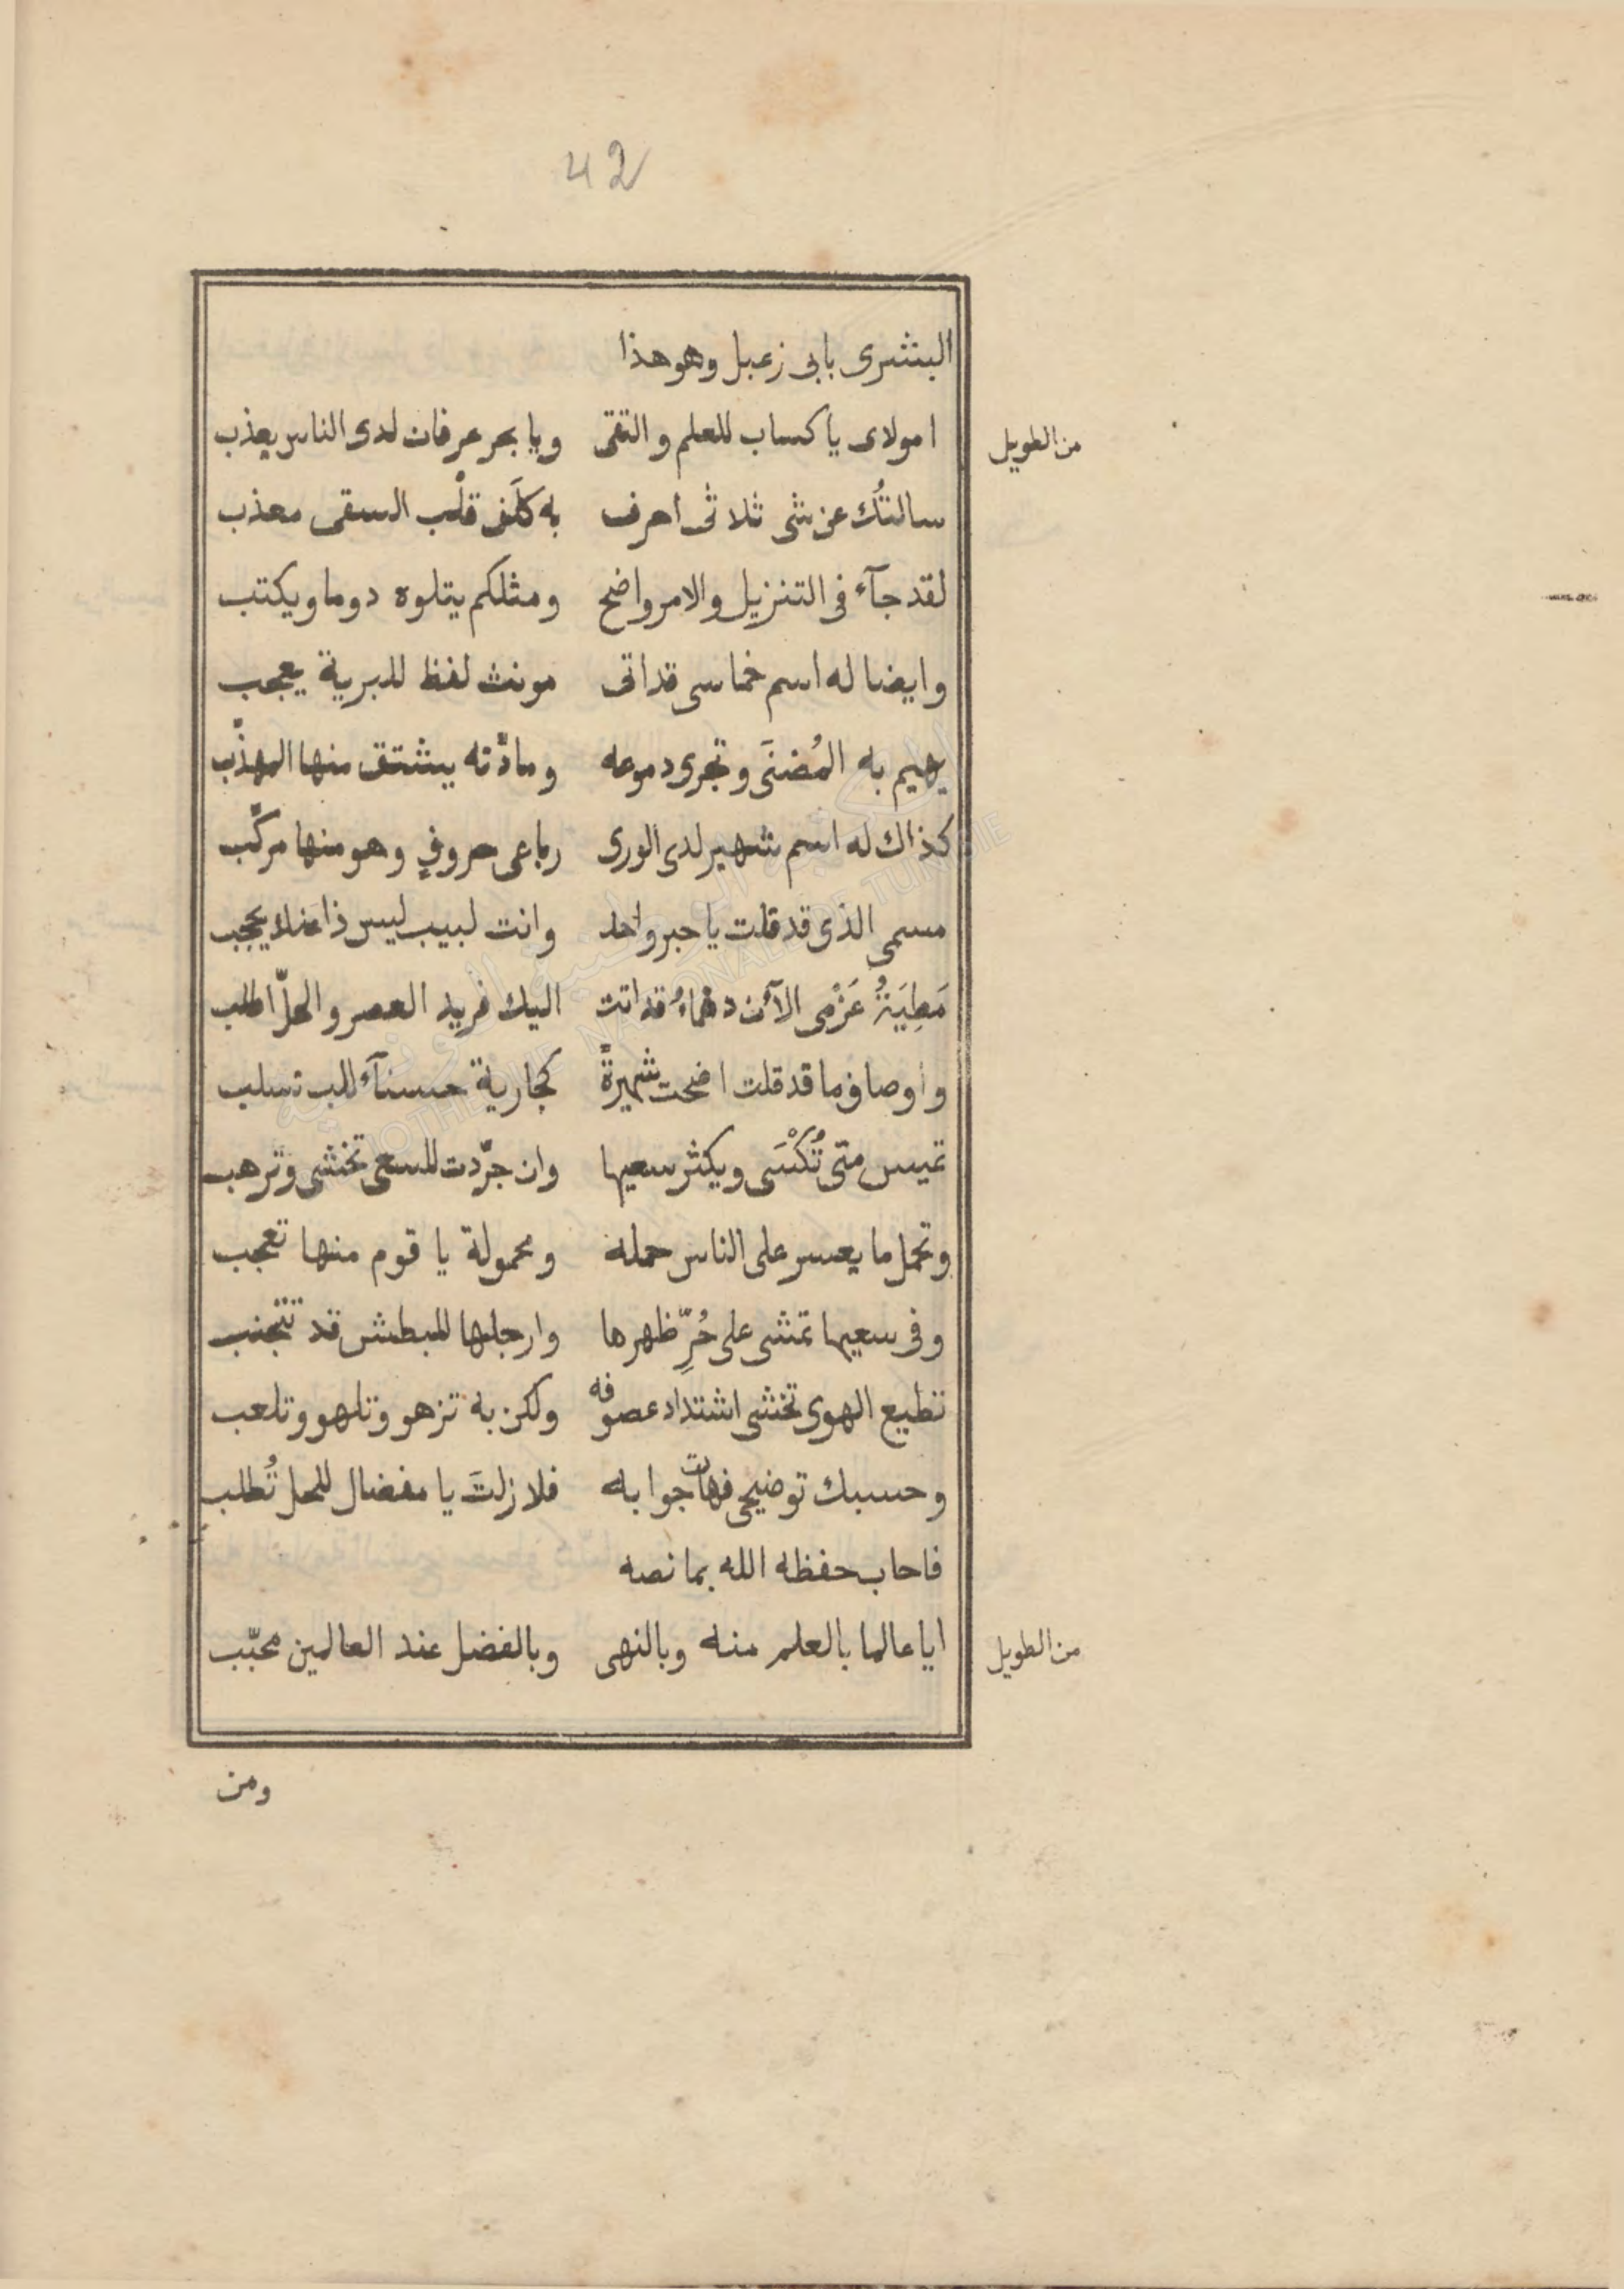 42
البشرى بابى زعبل وهو هذا
من الطويل
امولاى يا كساب للعلم والتقى ويا بحر عرفان لدى الناس يعذب
سالتُك عن شى ثلاثى احرف به كلَف قلْب السقى معذب
لقد جآء فى التنزيل والامر واضح ومثلكم يتلوه دوما ويكتب
وايضا له اسم خماسى قد اتى مونث لفظ للبرية يعجب
يهيم به المُضنَى وتجرى دموعه ومادّته يشتق منها المهذّب
كذاك له اسم شهير لدى الورى رباعى حروفٍ وهو منها مركّب
مسمى الذى قد قلت يا حبر واحد وانت لبيب ليس ذا عنك يحجب
مَطِيَةُ عَزْمى الآن دهماءُ قد اتت اليك فريد العصر والحلّ اطلب
واوصاف ما قد قلت اضحت شهيرةً كجارية حسنآء للب تسلب
تميس متى تُكْسَى ويكثر سعيها وان جرّدت للسعى تخشى وترهب
وتحمل ما يعسر على الناس حمله ومحمولة يا قوم منها تعجب
وفى سعيها تمشى على حُرِّ ظهرها وارجلها للبطش قد تتجنب
تطيع الهوى تخشى اشتداد عصوفه ولكن به تزهو وتلهو وتلعب
وحسبك توضيحى فهات جوابه فلا زلتَ يا مفضال للحل تُطلب
فاجاب حفظه الله بما نصه
من الطويل
ايا عالما بالعلم منه وبالنهى وبالفضل عند العالمين محبّب
ومن